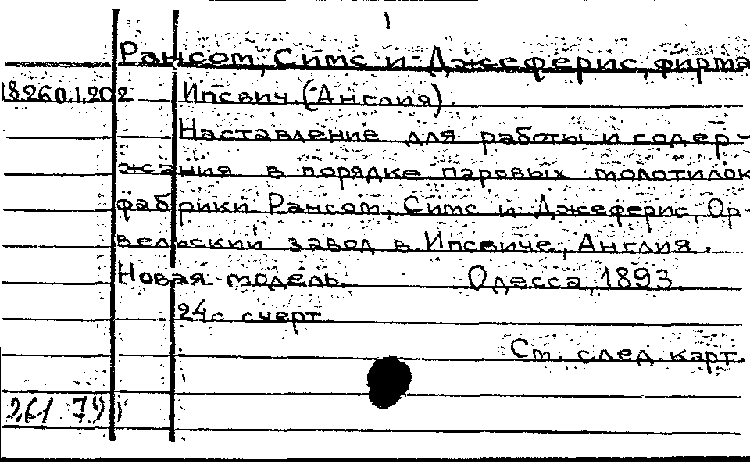 1
Рансом, Симс и Джеферис, фирма
18.260.1.202 Ипсвич (Англия).
Наставление для работы и содер-
жания в порядке паровых молотилок
фабрики Рансом, Симс и Джеферис, Ор-
вельский завод в Ипсвиче, Англия.
Новая модель. Одесса, 1893.
24с. с черт.
См. след. карт.
261 79